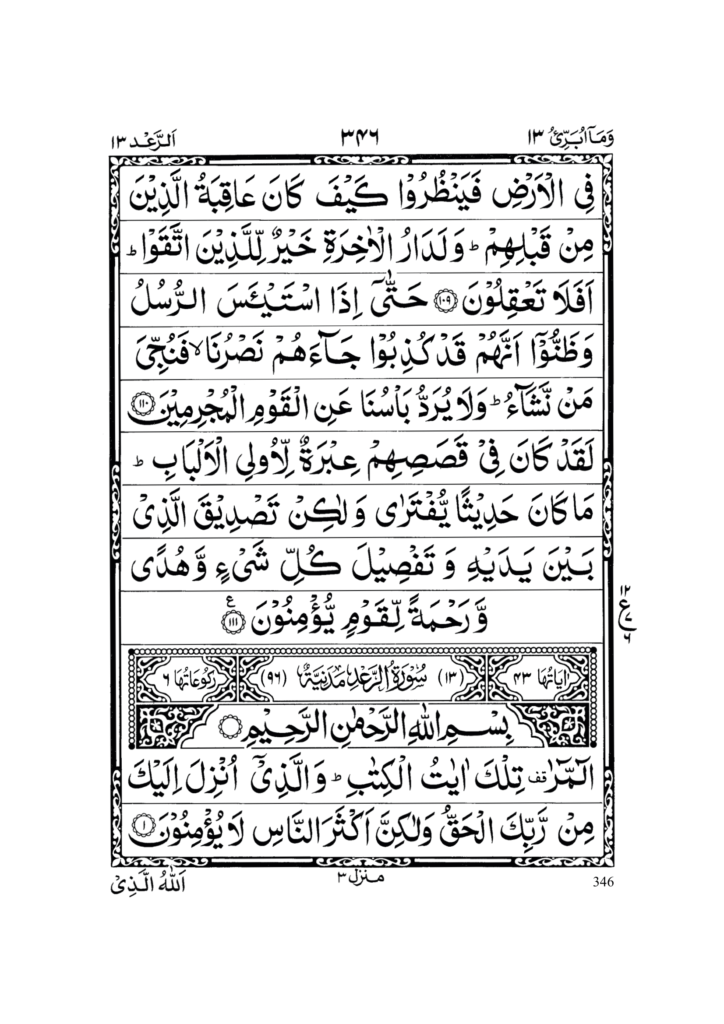 وَمَآ اُبَرِّئُ ١٣ ٣٤٦ اَلرَّعْد ١٣
فِی الْاَرْضِ فَیَنْظُرُوْا كَیْفَ كَانَ عَاقِبَةُ الَّذِیْنَ
مِنْ قَبْلِهِمْ ؕ وَلَدَارُ الْاٰخِرَةِ خَیْرٌ لِّلَّذِیْنَ اتَّقَوْا ؕ
اَفَلَا تَعْقِلُوْنَ ﴿١٠٩﴾ حَتّٰۤی اِذَا اسْتَیْـَٔسَ الرُّسُلُ
وَظَنُّوْۤا اَنَّهُمْ قَدْ كُذِبُوْا جَآءَهُمْ نَصْرُنَا ۙ فَنُجِّیَ
مَنْ نَّشَآءُ ؕ وَلَا یُرَدُّ بَاْسُنَا عَنِ الْقَوْمِ الْمُجْرِمِیْنَ ﴿١١٠﴾
لَقَدْ كَانَ فِیْ قَصَصِهِمْ عِبْرَةٌ لِّاُولِی الْاَلْبَابِ ؕ
مَا كَانَ حَدِیْثًا یُّفْتَرٰی وَلٰكِنْ تَصْدِیْقَ الَّذِیْ
بَیْنَ یَدَیْهِ وَ تَفْصِیْلَ كُلِّ شَیْءٍ وَّ هُدًی
وَّ رَحْمَةً لِّقَوْمٍ یُّؤْمِنُوْنَ ﴿١١١﴾ ع
١٢ ع ٧ ٦
اٰیَاتُهَا ٤٣ (١٣) سُوْرَةُ الرَّعْدِ مَدَنِیَّةٌ (٩٦) رُكُوْعَاتُهَا ٦
بِسْمِ اللّٰهِ الرَّحْمٰنِ الرَّحِیْمِ
الٓمّٓرٰ قف تِلْكَ اٰیٰتُ الْكِتٰبِ ؕ وَالَّذِیْۤ اُنْزِلَ اِلَیْكَ
مِنْ رَّبِّكَ الْحَقُّ وَلٰكِنَّ اَكْثَرَ النَّاسِ لَا یُؤْمِنُوْنَ ﴿١﴾
346 منزل ٣ اَللّٰهُ الَّذِیْ